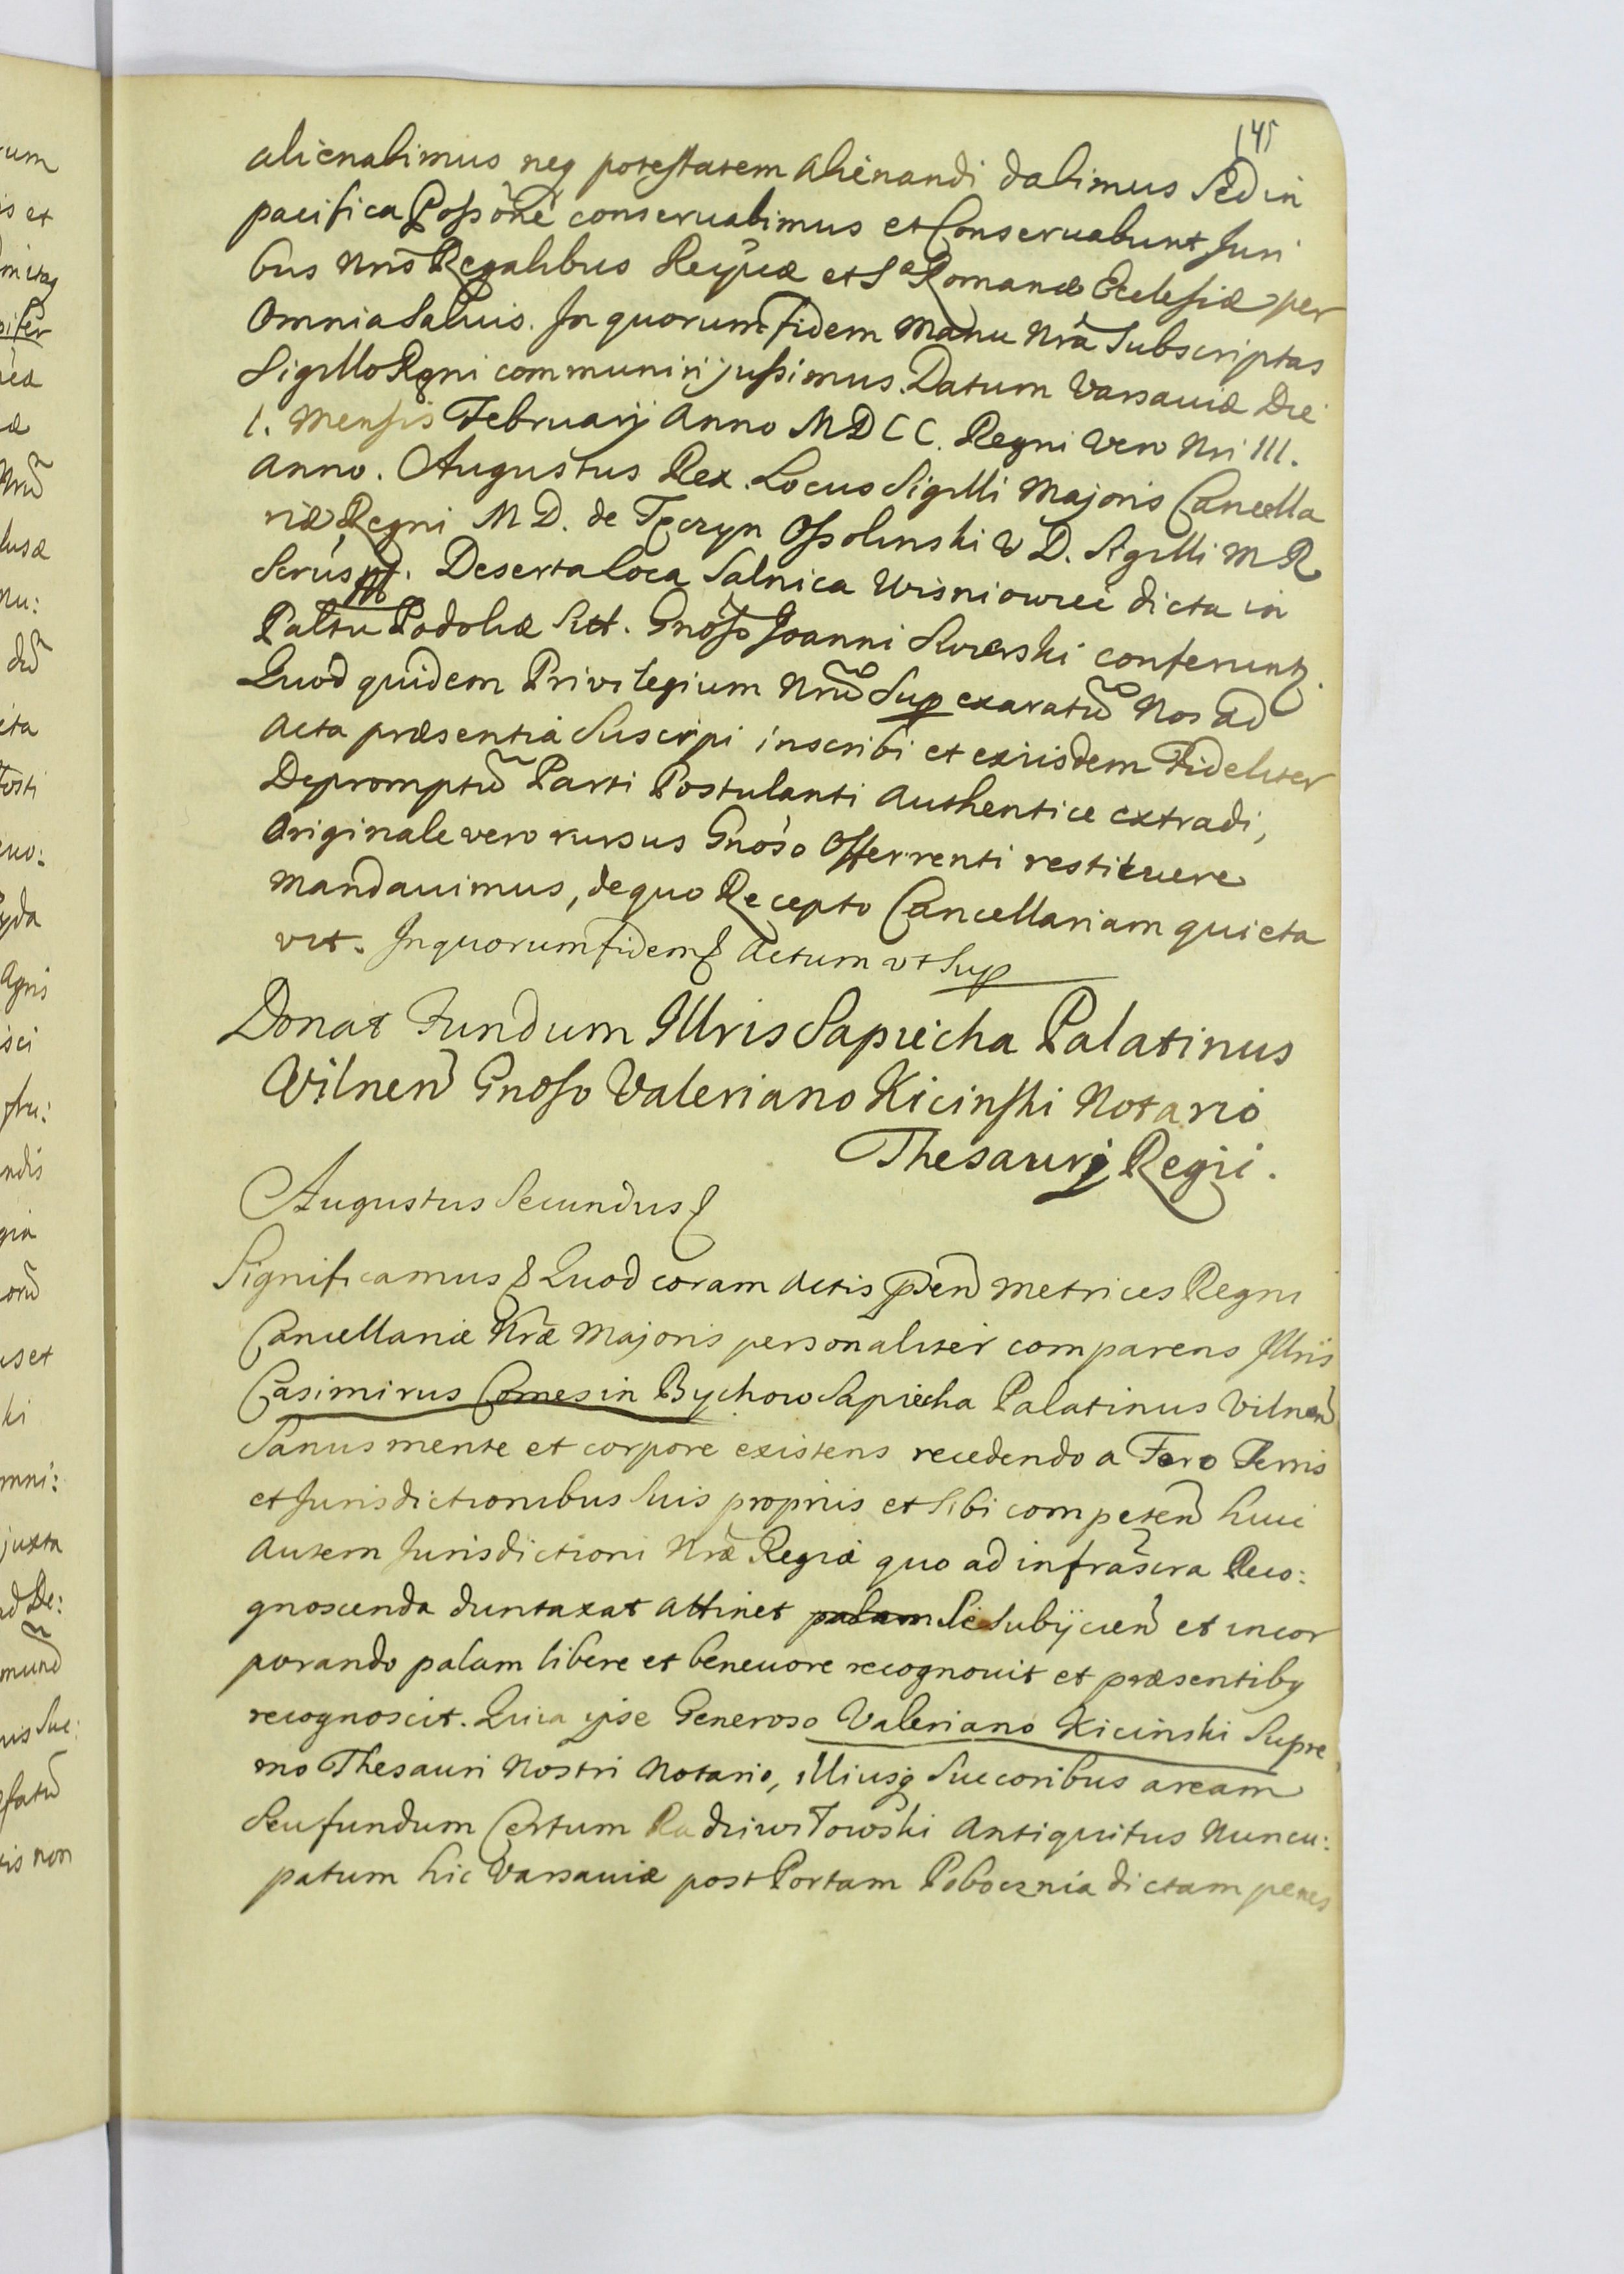 145
alienabimus neq potestatem alienandi dabimus Sed in
pacifica Possõne conservabimus et Conservabunt Juri
bus nris Regalibus Reipcæ et Sæ Romanæ Ecclesiæ per
Omnia Salvis. In quorum fidem manu nra Subscriptas
Sigillo Regni communiri jussimus. Datum Varsaviæ Die
1. Mensis Februarij Anno MDCC. Regni vero Nri III.
Anno. Augustus Rex. Locus Sigilli Majoris Cancella
riæ Regni M D. de Tęczyn Ossolinski V D. Sigilli M R
Deserta loca Salnica Wisniowiec dicta in
Palttu Podoliæ Sitt. Gnõso Joanni conferunt.
Quod quidem Privilegium Nrũ Sup exaratũ Nos ad
Acta præsentia Suscipi inscribi et exiisdem Fideliter
Depromptũ Parti Postulanti Authentice extradi,
Originale vero rursus Gnoso Offerrenti restituere
mandavimus, de quo Recepto Cancellariam quieta
vit. In quorum fidem & Actum ut Sup
Donat Fundum Illris Sapiecha Palatinus
Vilneñ Gnoso Valeriano Kicinski Notario
Thesaurj Regii.
Augustus Secundus &
Significamus & Quod coram Actis pseñ Metrices Regni
Cancellariæ Nræ Majoris personaliter comparens Illris
Casimirus Comes in Bychow Sapiecha Palatinus Vilneñ
Sanus mente et corpore existens recedendo a Foro Terris
et Jurisdictionibus Suis propriis et Sibi competeñ huic
Autem Jurisdictioni Nræ Regiæ quo ad infrascra Reco:
gnoscenda duntaxat attinet palam Se Subijcieñ et incor
porando palam libere et benevore recognovit et præsentibq
recognoscit. Quia ipse Generoso Valeriano Kicinski Supre
mo Thesauri Nostri Notario, illiusq Succoribus aream
Seu fundum Certum Radziwiłowski Antiquitus Nuncu:
patum hic Varsaviæ post Portam Pobocznia dictam penes